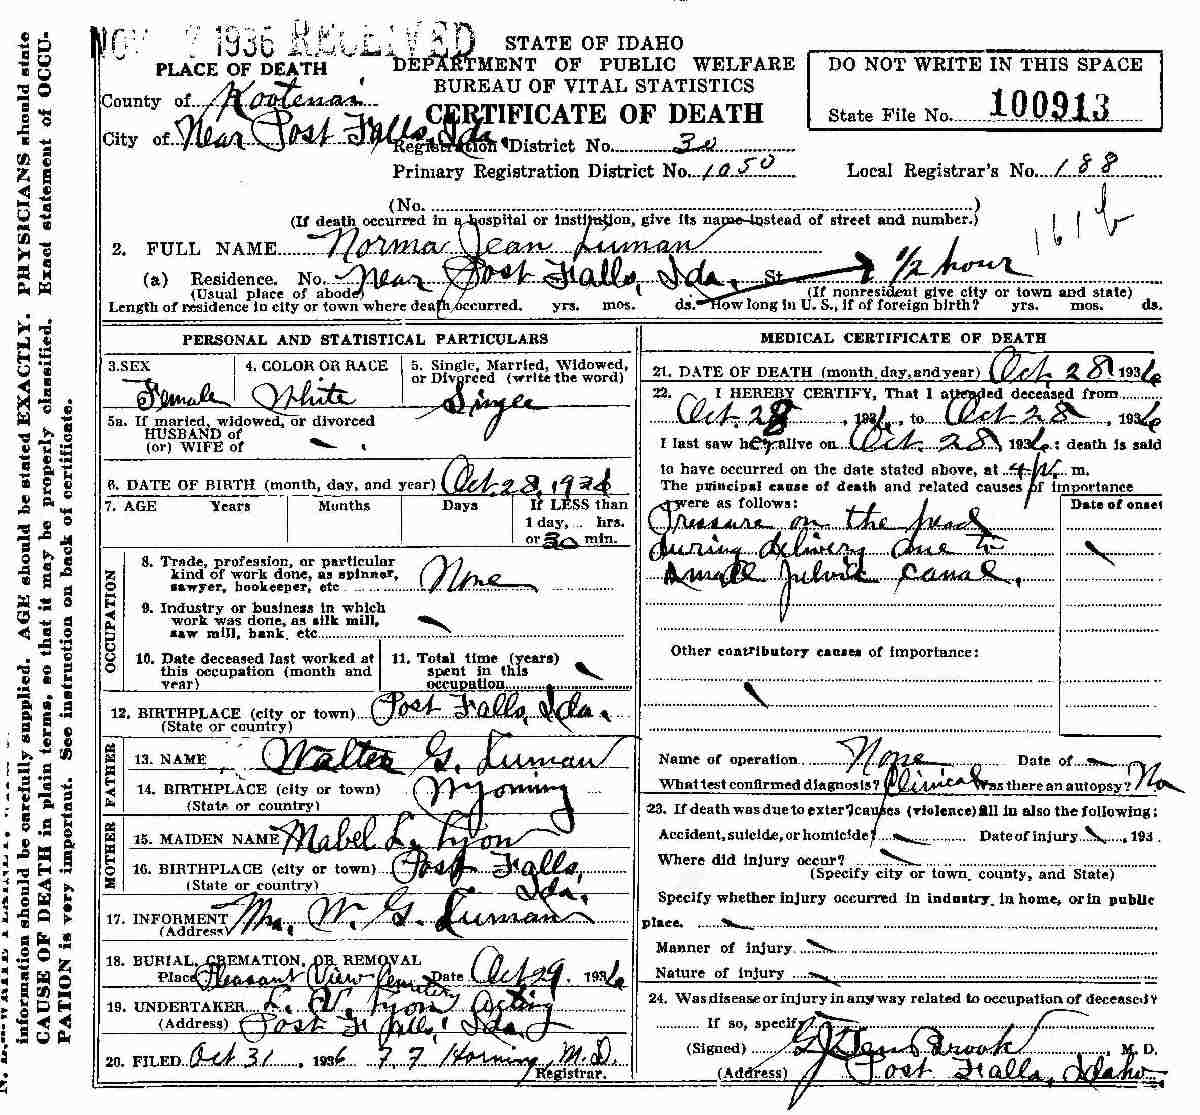 NOV 7 1936 RECEIVED
STATE OF IDAHO
DEPARTMENT OF PUBLIC WELFARE
BUREAU OF VITAL STATISTICS
CERTIFICATE OF DEATH
DO NOT WRITE IN THIS SPACE
State File No. 100913
PLACE OF DEATH
County of Kootenai
City of Near Post Falls, Ida.
Registration District No. 30
Primary Registration District No. 1050 Local Registrar's No. 188
(No. )
(If death occurred in a hospital or institution, give its name instead of street and number.)
161b
2. FULL NAME Norma Jean Luman
(a) Residence. No. Near Post Falls, Ida. St. 1/2 hour
(Usual place of abode) (If nonresident give city or town and state)
Length of residence in city or town where death occurred. yrs. mos. ds. How long in U. S., if of foreign birth? yrs. mos. ds.
PERSONAL AND STATISTICAL PARTICULARS
3. SEX Female
4. COLOR OR RACE White
5. Single, Married, Widowed, or Divorced (write the word) Single
5a. If maried, widowed, or divorced
HUSBAND of
(or) WIFE of
6. DATE OF BIRTH (month, day, and year) Oct. 28, 1936
7. AGE Years Months Days If LESS than
1 day, ... hrs.
or 30 min.
OCCUPATION
8. Trade, profession, or particular
kind of work done, as spinner,
sawyer, bookeeper, etc. None
9. Industry or business in which
work was done, as silk mill,
saw mill, bank, etc.
10. Date deceased last worked at
this occupation (month and
year)
11. Total time (years)
spent in this
occupation
12. BIRTHPLACE (city or town) Post Falls, Ida.
(State or country)
FATHER
13. NAME Walter G. Luman
14. BIRTHPLACE (city or town) Wyoming
(State or country)
MOTHER
15. MAIDEN NAME Mabel L. Lyon
16. BIRTHPLACE (city or town) Post Falls,
(State or country) Ida.
17. INFORMENT W. G. Luman
(Address)
18. BURIAL, CREMATION, OR REMOVAL
Place Pleasant View Cemetery Date Oct 29, 1936
19. UNDERTAKER L. V. Lyon Acting
(Address) Post Falls, Ida.
20. FILED Oct 31, 1936 Horning, M.D.
Registrar.
MEDICAL CERTIFICATE OF DEATH
21. DATE OF DEATH (month, day, and year) Oct. 28 1936
22. I HEREBY CERTIFY, That I attended deceased from
Oct. 28, 1936, to Oct 28, 1936
I last saw her alive on Oct. 28, 1936: death is said
to have occurred on the date stated above, at 4 P. m.
The principal cause of death and related causes of importance
were as follows: Date of onset
Pressure on the head
during delivery due to
small pelvic canal.
Other contributory causes of importance:
Name of operation None Date of
What test confirmed diagnosis? Clinical Was there an autopsy? No
23. If death was due to exter? causes (violence) fill in also the following:
Accident, suicide, or homicide? Date of injury , 193 .
Where did injury occur?
(Specify city or town, county, and State)
Specify whether injury occurred in industry, in home, or in public
place.
Manner of injury
Nature of injury
24. Was disease or injury in any way related to occupation of deceased?
If so, specify
(Signed) , M. D.
(Address) Post Falls, Idaho
information should be carefully supplied. AGE should be stated EXACTLY. PHYSICIANS should state
CAUSE OF DEATH in plain terms, so that it may be properly classified. Exact statement of OCCU-
PATION is very important. See instruction on back of certificate.